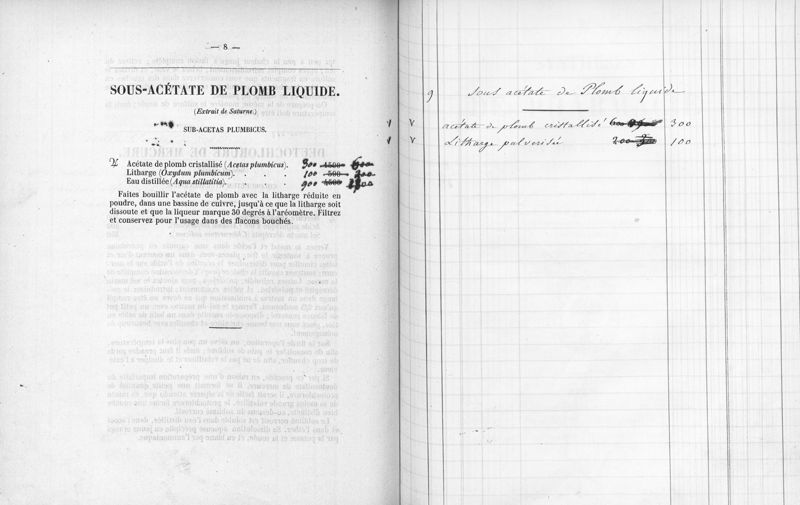 — 8 —
SOUS-ACÉTATE DE PLOMB LIQUIDE.
(Extrait de Saturne.)
SUB-ACETAS PLUMBICUS.
Acétate de plomb cristallisé (Acetas plumbicus). 300 1500 600
Litharge (Oxydum plumbicum). 100 500 200
Eau distillée (Aqua stillatitia). 900 4500
Faites bouillir l'acétate de plomb avec la litharge réduite en
poudre, dans une bassine de cuivre, jusqu'à ce que la litharge soit
dissoute et que la liqueur marque 30 degrés à l'aréomètre. Filtrez
et conservez pour l'usage dans des flacons bouchés.
9 Sous acétate de Plomb liquide
v v acétate de plomb cristallisé 600 300
v v Litharge pulverisée 200 100